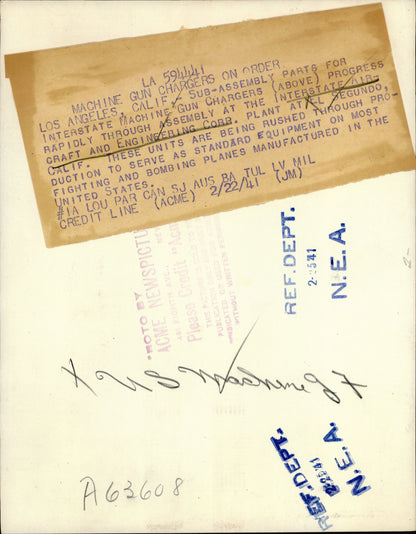 LA 594441
MACHINE GUN CHARGERS ON ORDER
LOS ANGELES, CALIF., SUB-ASSEMBLY PARTS FOR
INTERSTATE MACHINE GUN CHARGERS (ABOVE) PROGRESS
RAPIDLY THROUGH ASSEMBLY AT THE INTERSTATE AIR-
CRAFT AND ENGINEERING CORP. PLANT AT EL SEGUNDO,
CALIF. THESE UNITS ARE BEING RUSHED THROUGH PRO-
DUCTION TO SERVE AS STANDARD EQUIPMENT ON MOST
FIGHTING AND BOMBING PLANES MANUFACTURED IN THE
UNITED STATES.
LOU PAR CAN SJ AUS BA TUL LV MIL
CREDIT LINE (ACME) 2/22/41 (JM)
PHOTO BY
ACME NEWSPICTU
Please Credit "Acme
WITHOUT WRITTEN
REF. DEPT.
N.E.A.
X US Machine
A63608
REF. DEPT.
N.E.A.